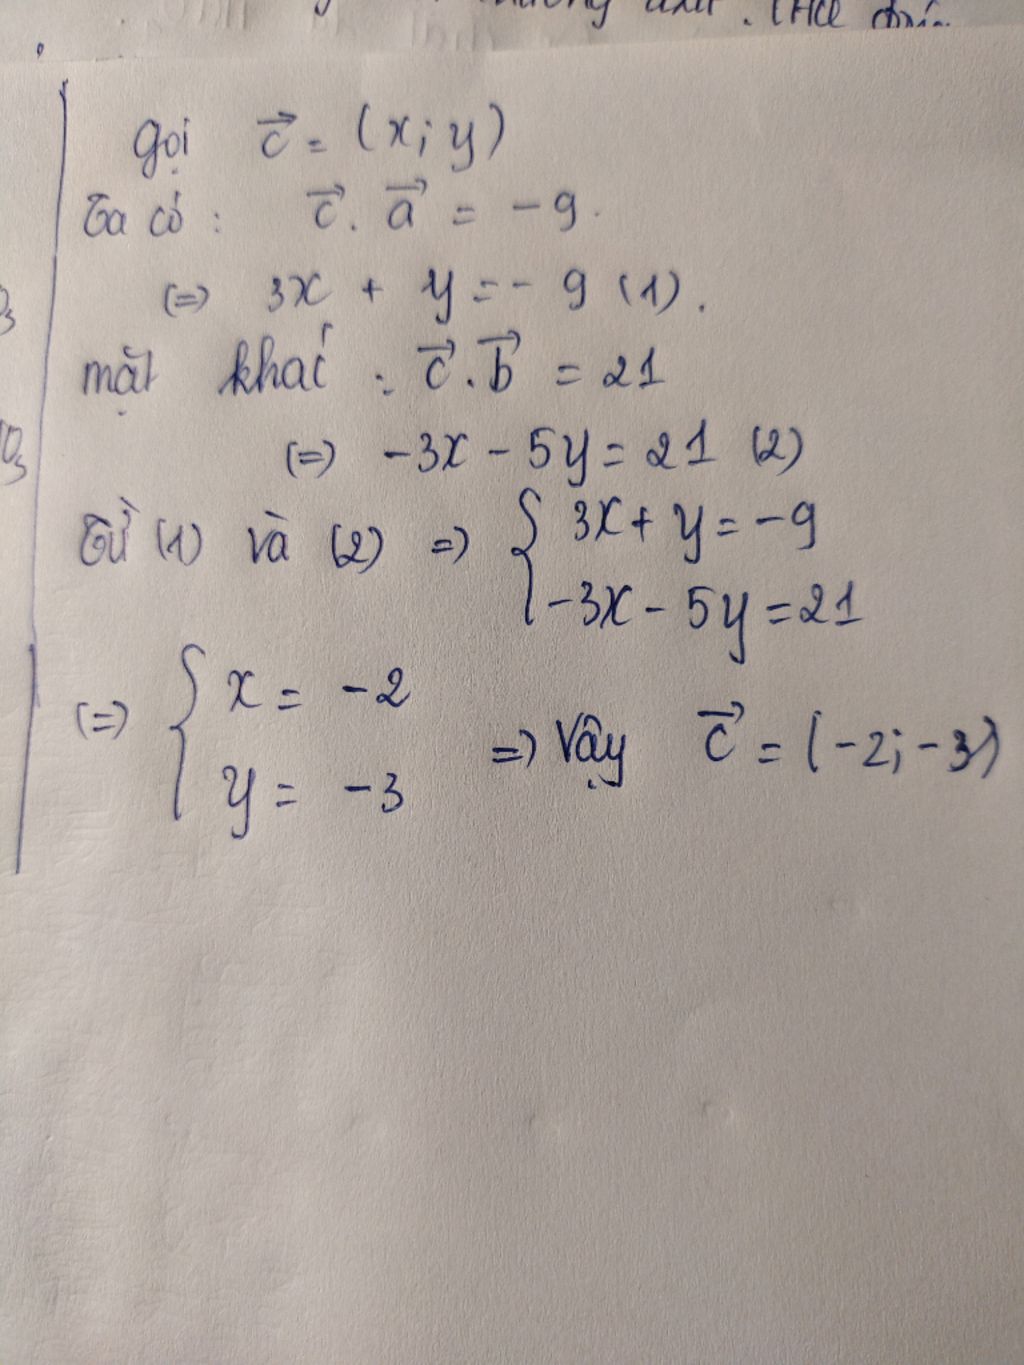 gọi c⃗ = (x; y)
Ta có : c⃗ . a⃗ = -9.
(=) 3x + y = - 9 (1).
mặt khác : c⃗ . b⃗ = 21
(=) -3x - 5y = 21 (2)
Từ (1) và (2) =) { 3x + y = -9
-3x - 5y = 21
(=) { x = -2
y = -3 =) Vậy c⃗ = (-2; -3)